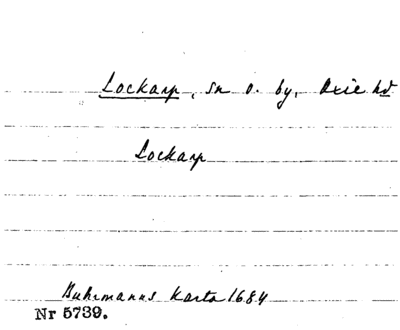 Lockarp, sn o. by, Oxie hd
Lockarp
Buhrmanns Karta 1684
Nr 5739.